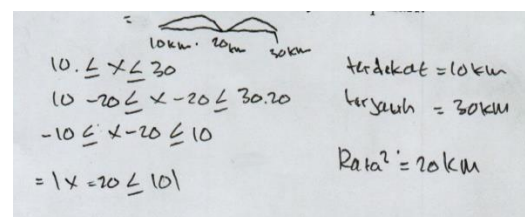 =
10km. 20km 30km
10. ≤ x ≤ 30
10 -20 ≤ x -20 ≤ 30.20
-10 ≤ x-20 ≤ 10
= |x =20 ≤ 10|
terdekat = 10km
terjauh = 30km
Rata² = 20km